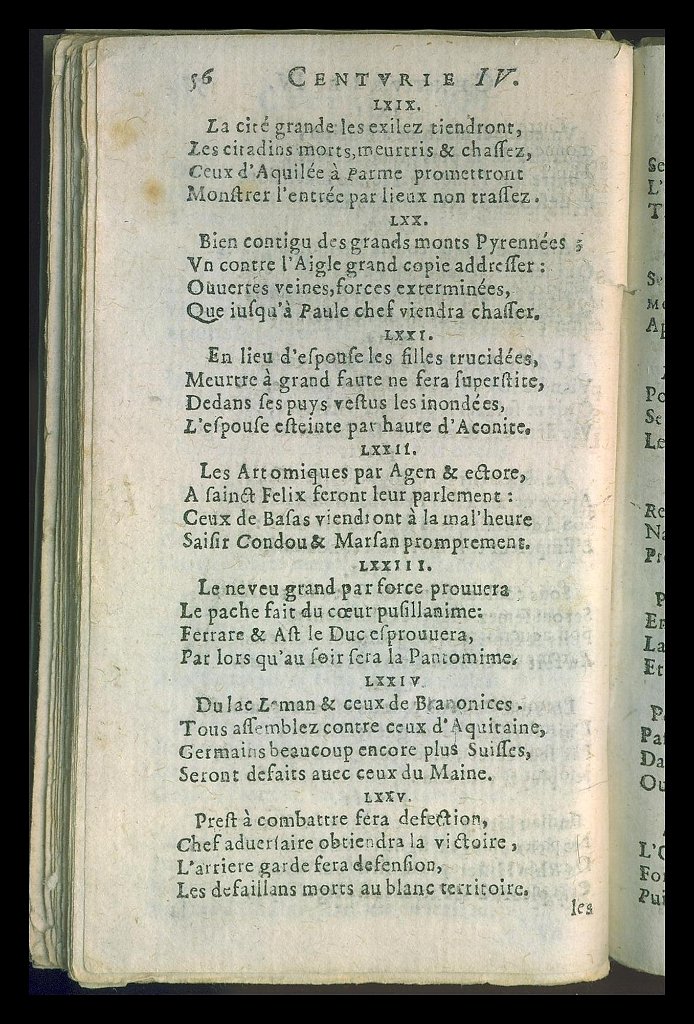 56 CENTVRIE IV.
LXIX.
La cité grande les exilez tiendront,
Les citadins morts, meurtris & chaſſez,
Ceux d'Aquilée à Parme promettront
Monſtrer l'entrée par lieux non traſſez.
LXX.
Bien contigu des grands monts Pyrennées ;
Vn contre l'Aigle grand copie addreſſer :
Ouuertes veines, forces exterminées,
Que iuſqu'à Paule chef viendra chaſſer.
LXXI.
En lieu d'eſpouſe les filles trucidées,
Meurtre à grand faute ne fera ſuperſtite,
Dedans ſes puys veſtus les inondées,
L'eſpouſe eſteinte par haute d'Aconite.
LXXII.
Les Artomiques par Agen & ectore,
A ſainct Felix feront leur parlement :
Ceux de Baſas viendront à la mal'heure
Saiſir Condou & Marſan promptement.
LXXIII.
Le neveu grand par force prouuera
Le pache fait du cœur puſillanime:
Ferrare & Aſt le Duc eſprouuera,
Par lors qu'au ſoir ſera la Pantomime.
LXXIV
Du lac Leman & ceux de Branonices.
Tous aſſemblez contre ceux d'Aquitaine,
Germains beaucoup encore plus Suiſſes,
Seront defaits auec ceux du Maine.
LXXV.
Preſt à combattre fera defection,
Chef aduerſaire obtiendra la victoire,
L'arriere garde fera defenſion,
Les defaillans morts au blanc territoire.
les
Se
L'
T
Se
Ap
Po
Se
Le
Re
Na
Pr
P
En
La
Et
Pa
Da
Ou
L'
Fo
Pui